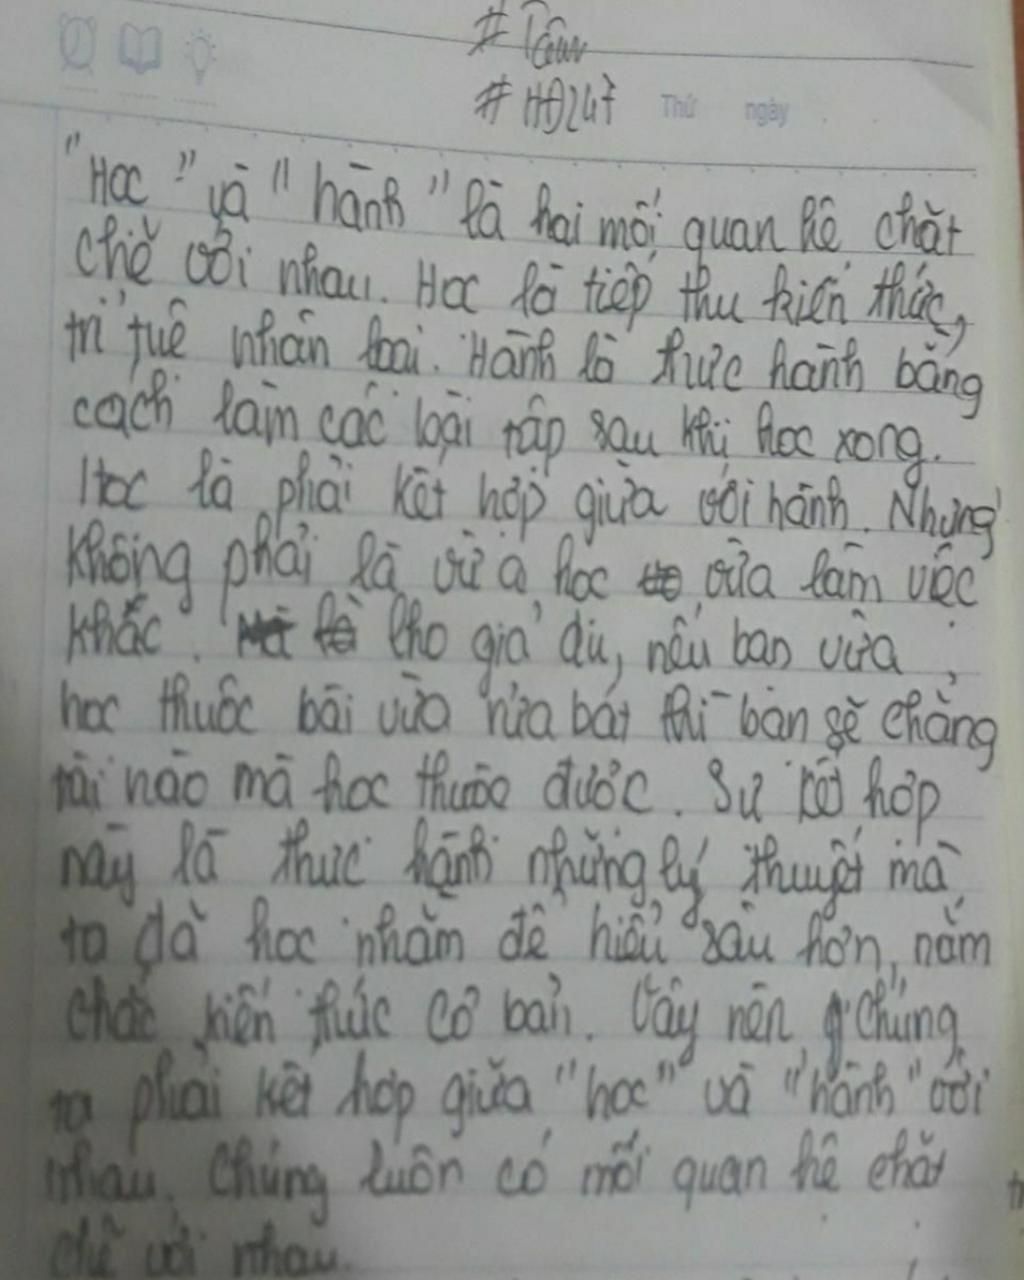 #Tâm
#HĐ247
Thứ ngày
"Học" và "hành" là hai mối quan hệ chặt
chẽ với nhau. Học là tiếp thu kiến thức,
trí tuệ nhân loại. Hành là thực hành bằng
cách làm các loại tập sau khi học xong.
Học là phải kết hợp giữa với hành. Nhưng
không phải là vừa học vừa làm việc
khác. Cho giả dụ, nếu bạn vừa
học thuộc bài vừa rửa bát thì bạn sẽ chẳng
tài nào mà học thuộc được. Sự kết hợp
này là thực hành những lý thuyết mà
ta đã học nhằm để hiểu sâu hơn, nắm
chắc kiến thức cơ bản. Vậy nên chúng
ta phải kết hợp giữa "học" và "hành" với
nhau. Chúng luôn có mối quan hệ chặt
chẽ với nhau.